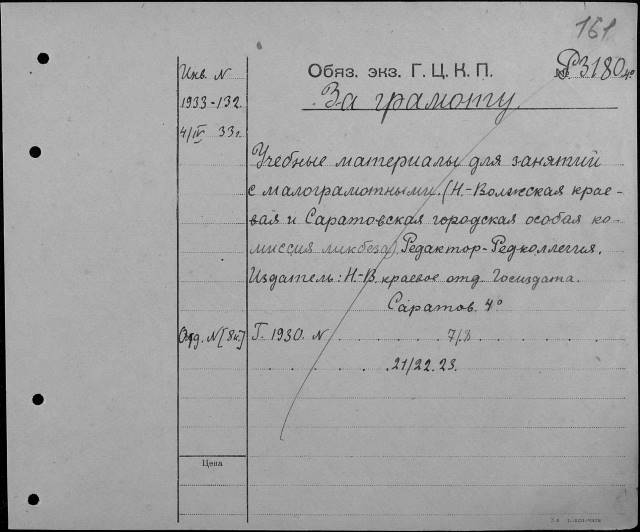 161
Инв. N
Обяз. экз. Г. Ц. К. П.
№ Р3180 4°
1933-132.
За грамоту
4/IV 33г.
Учебные материалы для занятий
с малограмотными. (Н.-Волжская крае-
вая и Саратовская городская особая ко-
миссия ликбеза). Редактор-Редколлегия.
Издатель: Н-В. краевое отд. Госиздата.
Саратов. 4°
Отд. N [8к.] Г. 1930. N . . . . . 7/8 . . . . . .
. . . . . . 21/22. 23.
Цена